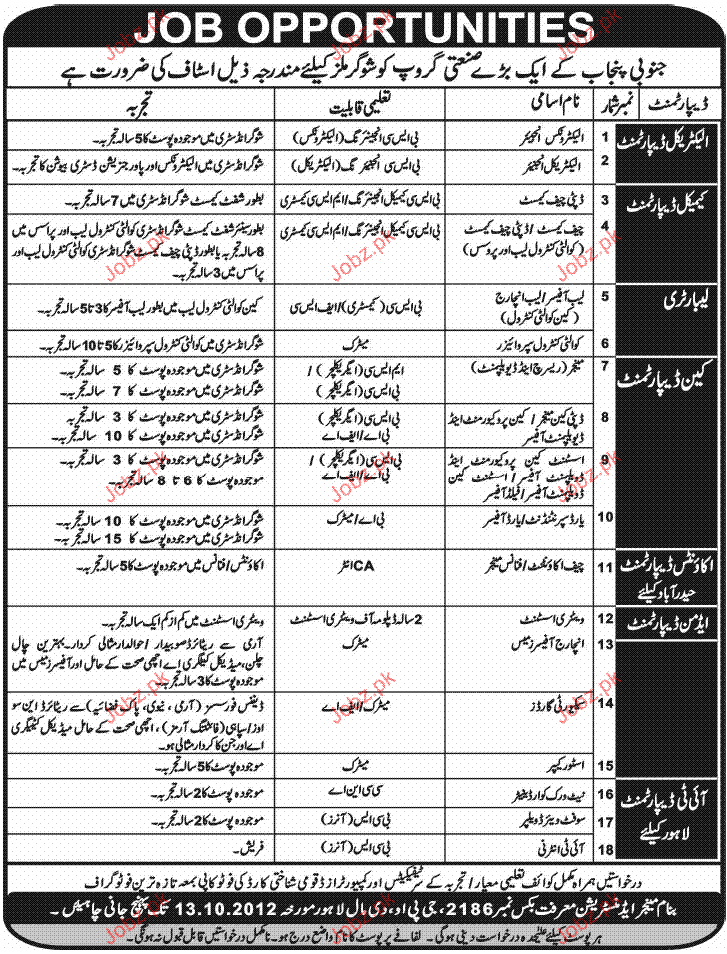 JOB OPPORTUNITIES
جنوبی پنجاب کے ایک بڑے صنعتی گروپ کو شوگر ملز کیلئے مندرجہ ذیل اسٹاف کی ضرورت ہے
ڈیپارٹمنٹ نمبر شمار نام اسامی تعلیمی قابلیت تجربہ
الیکٹریکل ڈیپارٹمنٹ
1 الیکٹرونکس انجینئر بی ایس سی انجینئرنگ (الیکٹرونکس) شوگر انڈسٹری میں موجودہ پوسٹ کا 5 سالہ تجربہ۔
2 الیکٹریکل انجینئر بی ایس سی انجینئرنگ (الیکٹریکل) شوگر انڈسٹری میں الیکٹرونکس اور پاور جنریشن ڈسٹری بیوشن کا تجربہ۔
کیمیکل ڈیپارٹمنٹ
3 ڈپٹی چیف کیمسٹ بی ایس سی کیمیکل انجینئرنگ / ایم ایس سی کیمسٹری بطور شفٹ کیمسٹ شوگر انڈسٹری میں 7 سالہ تجربہ۔
4 چیف کیمسٹ / ڈپٹی چیف کیمسٹ بی ایس سی کیمیکل انجینئرنگ / ایم ایس سی کیمسٹری بطور سینئر شفٹ کیمسٹ شوگر انڈسٹری کوالٹی کنٹرول لیب اور پراسس میں
(کوالٹی کنٹرول لیب اور پروسس) 8 سالہ تجربہ یا بطور ڈپٹی چیف کیمسٹ شوگر انڈسٹری کوالٹی کنٹرول لیب اور
پراسس میں 3 سالہ تجربہ۔
لیبارٹری
5 لیب آفیسر / لیب انچارج بی ایس سی (کیمسٹری) / ایف ایس سی کین کوالٹی کنٹرول لیب میں بطور لیب آفیسر کا 3 تا 5 سالہ تجربہ۔
(کین کوالٹی کنٹرول)
6 کوالٹی کنٹرول سپروائیزر میٹرک شوگر انڈسٹری میں کوالٹی کنٹرول سپروائیزر کا 5 تا 10 سالہ تجربہ۔
کین ڈیپارٹمنٹ
7 منیجر (ریسرچ اینڈ ڈیویلپمنٹ) ایم ایس سی (ایگریکلچر) / شوگر انڈسٹری میں موجودہ پوسٹ کا 5 سالہ تجربہ۔
بی ایس سی (ایگریکلچر) شوگر انڈسٹری میں موجودہ پوسٹ کا 7 سالہ تجربہ۔
8 ڈپٹی کین منیجر / کین پروکیورمنٹ اینڈ بی ایس سی (ایگریکلچر) شوگر انڈسٹری میں موجودہ پوسٹ کا 3 سالہ تجربہ
ڈیویلپمنٹ آفیسر بی اے / ایف اے شوگر انڈسٹری میں موجودہ پوسٹ کا 10 سالہ تجربہ۔
9 اسسٹنٹ کین پروکیورمنٹ اینڈ بی ایس سی (ایگریکلچر) / شوگر انڈسٹری میں موجودہ پوسٹ کا 3 سالہ تجربہ۔
ڈیویلپمنٹ آفیسر / اسسٹنٹ کین بی اے / ایف اے موجودہ پوسٹ کا 6 تا 8 سالہ تجربہ۔
ڈیویلپمنٹ آفیسر / فیلڈ آفیسر
10 یارڈ سپرنٹنڈنٹ / یارڈ آفیسر بی اے / میٹرک شوگر انڈسٹری میں موجودہ پوسٹ کا 10 سالہ تجربہ۔
شوگر انڈسٹری میں موجودہ پوسٹ کا 15 سالہ تجربہ۔
اکاؤنٹس ڈیپارٹمنٹ
حیدر آباد کیلئے
11 چیف اکاؤنٹنٹ / فنانس منیجر CA انٹر اکاؤنٹس / فنانس میں موجودہ پوسٹ کا 5 سالہ تجربہ۔
ایڈمن ڈیپارٹمنٹ
12 ویٹنری اسسٹنٹ 2 سالہ ڈپلومہ آف ویٹنری اسسٹنٹ ویٹنری اسسٹنٹ میں کم از کم ایک سالہ تجربہ۔
13 انچارج آفیسرز میس میٹرک آرمی سے ریٹائرڈ صوبیدار / حوالدار مثالی کردار۔ بہترین چال
چلن، میڈیکل کیٹگری اے اچھی صحت کے حامل اور آفیسرز میس میں
موجودہ پوسٹ کا 3 سالہ تجربہ۔
14 سکیورٹی گارڈز میٹرک / ایف اے ڈیفنس فورسسز (آرمی، نیوی، پاک فضائیہ) سے ریٹائرڈ این سو
اوز / سپاہی (فائٹنگ آرمز)، اچھی صحت کے حامل میڈیکل کیٹیگری
اے اور جن کا کردار مثالی ہو۔
15 اسٹور کیپر میٹرک موجودہ پوسٹ کا 5 سالہ تجربہ۔
آئی ٹی ڈیپارٹمنٹ
لاہور کیلئے
16 نیٹ ورک کوارڈینیٹر سی سی این اے موجودہ پوسٹ کا 2 سالہ تجربہ۔
17 سوفٹ ویئر ڈویلپر بی سی ایس (آنرز) موجودہ پوسٹ کا 2 سالہ تجربہ۔
18 آئی ٹی انٹرنی بی سی ایس (آنرز) فریش۔
درخواستیں ہمراہ مکمل کوائف تعلیمی معیار / تجربہ کے سرٹیفکیٹس اور کمپیوٹرائزڈ قومی شناختی کارڈ کی فوٹو کاپی بمعہ تازہ ترین فوٹو گراف
بنام منیجر ایڈمنسٹریشن معرفت بکس نمبر 2186، جی پی او، دی مال لاہور مورخہ 13.10.2012 تک پہنچ جانی چاہئیں۔
ہر پوسٹ کیلئے علیحدہ درخواست دینی ہوگی۔ لفافے پر پوسٹ کا نام واضح درج ہو۔ نامکمل درخواستیں قابل قبول نہ ہونگی۔